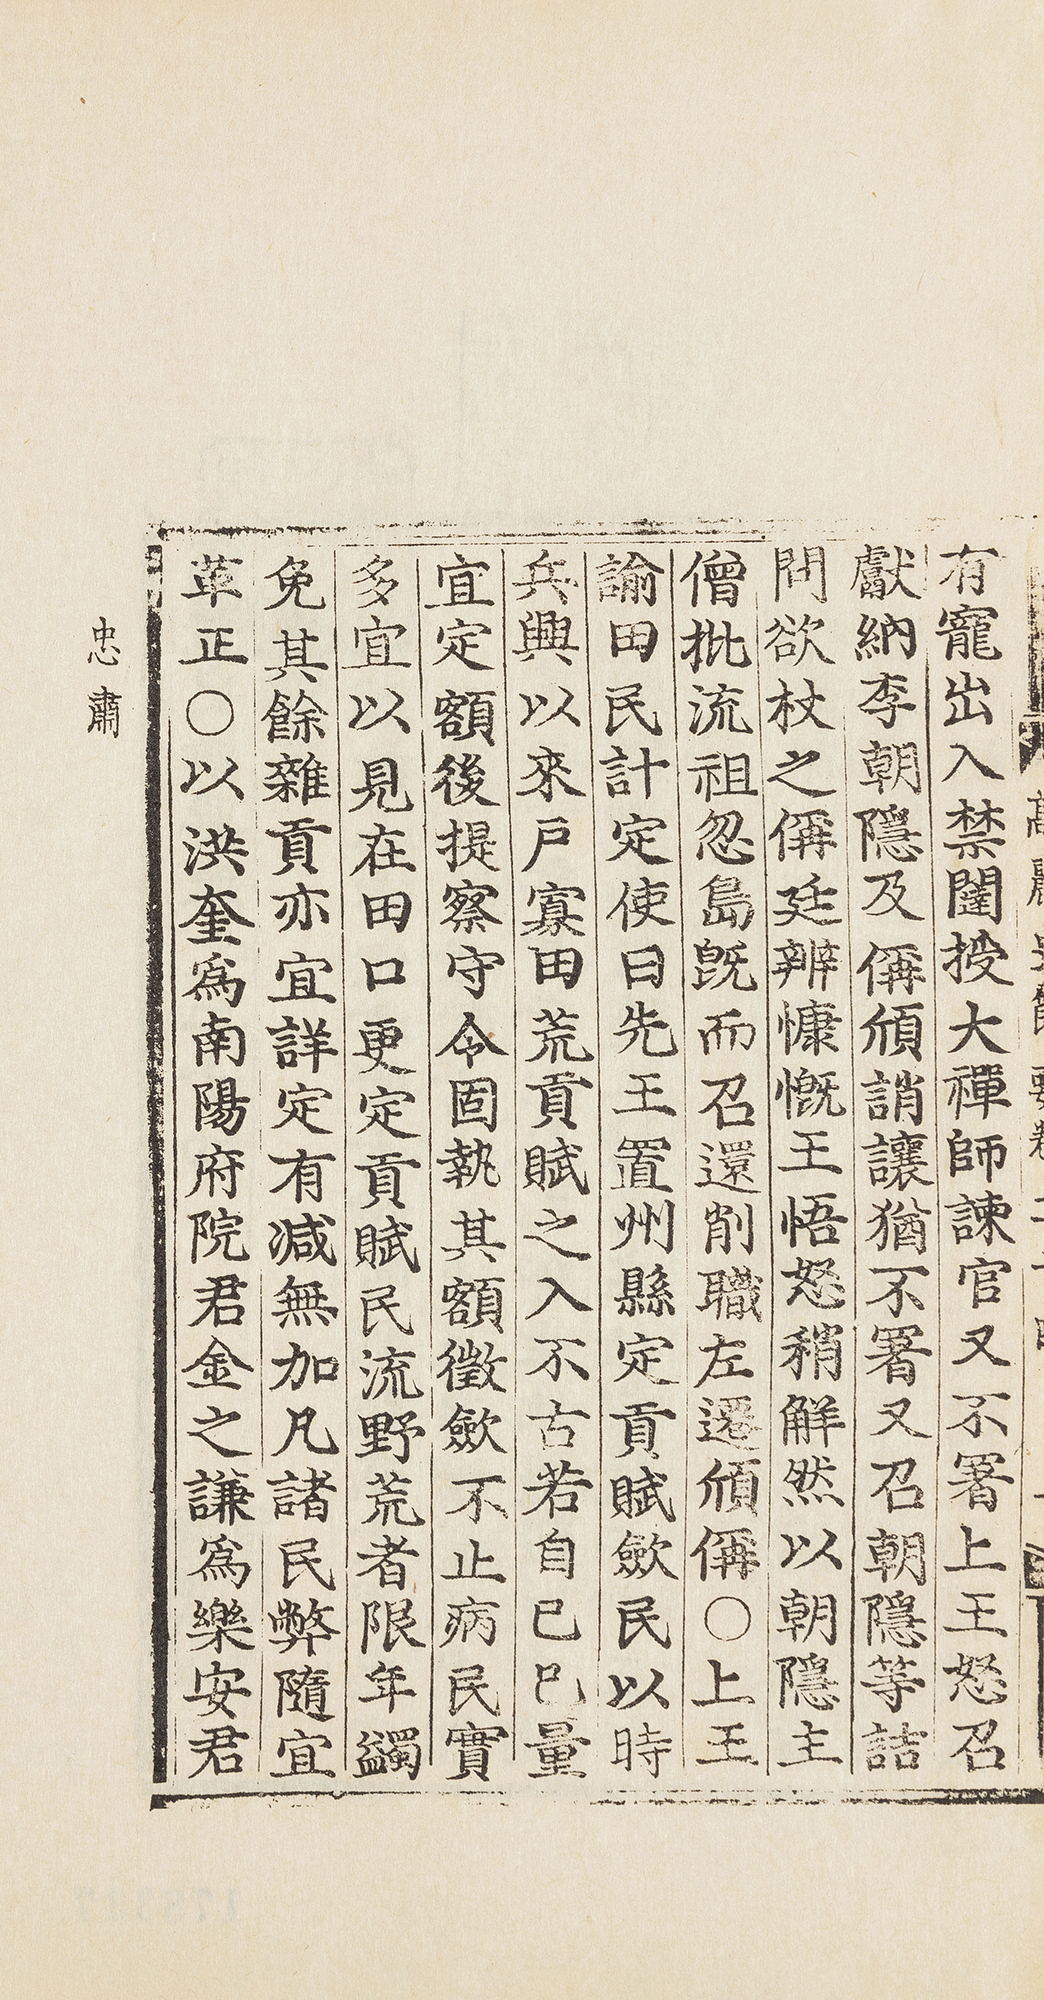 有寵出入禁闥授大禪師諫官又不署上王怒召
獻納李朝隱及偁頎誚讓猶不署又召朝隱等詰
問欲杖之偁廷辨慷慨王悟怒稍解然以朝隱主
僧批流祖忽島旣而召還削職左遷頎偁〇上王
諭田民計定使曰先王置州縣定貢賦歛民以時
兵興以來戶寡田荒貢賦之入不古若自己巳量
宜定額後提察守令固執其額徵歛不止病民實
多宜以見在田口更定貢賦民流野荒者限年蠲
免其餘雜貢亦宜詳定有减無加凡諸民弊隨宜
革正〇以洪奎爲南陽府院君金之謙爲樂安君
忠肅